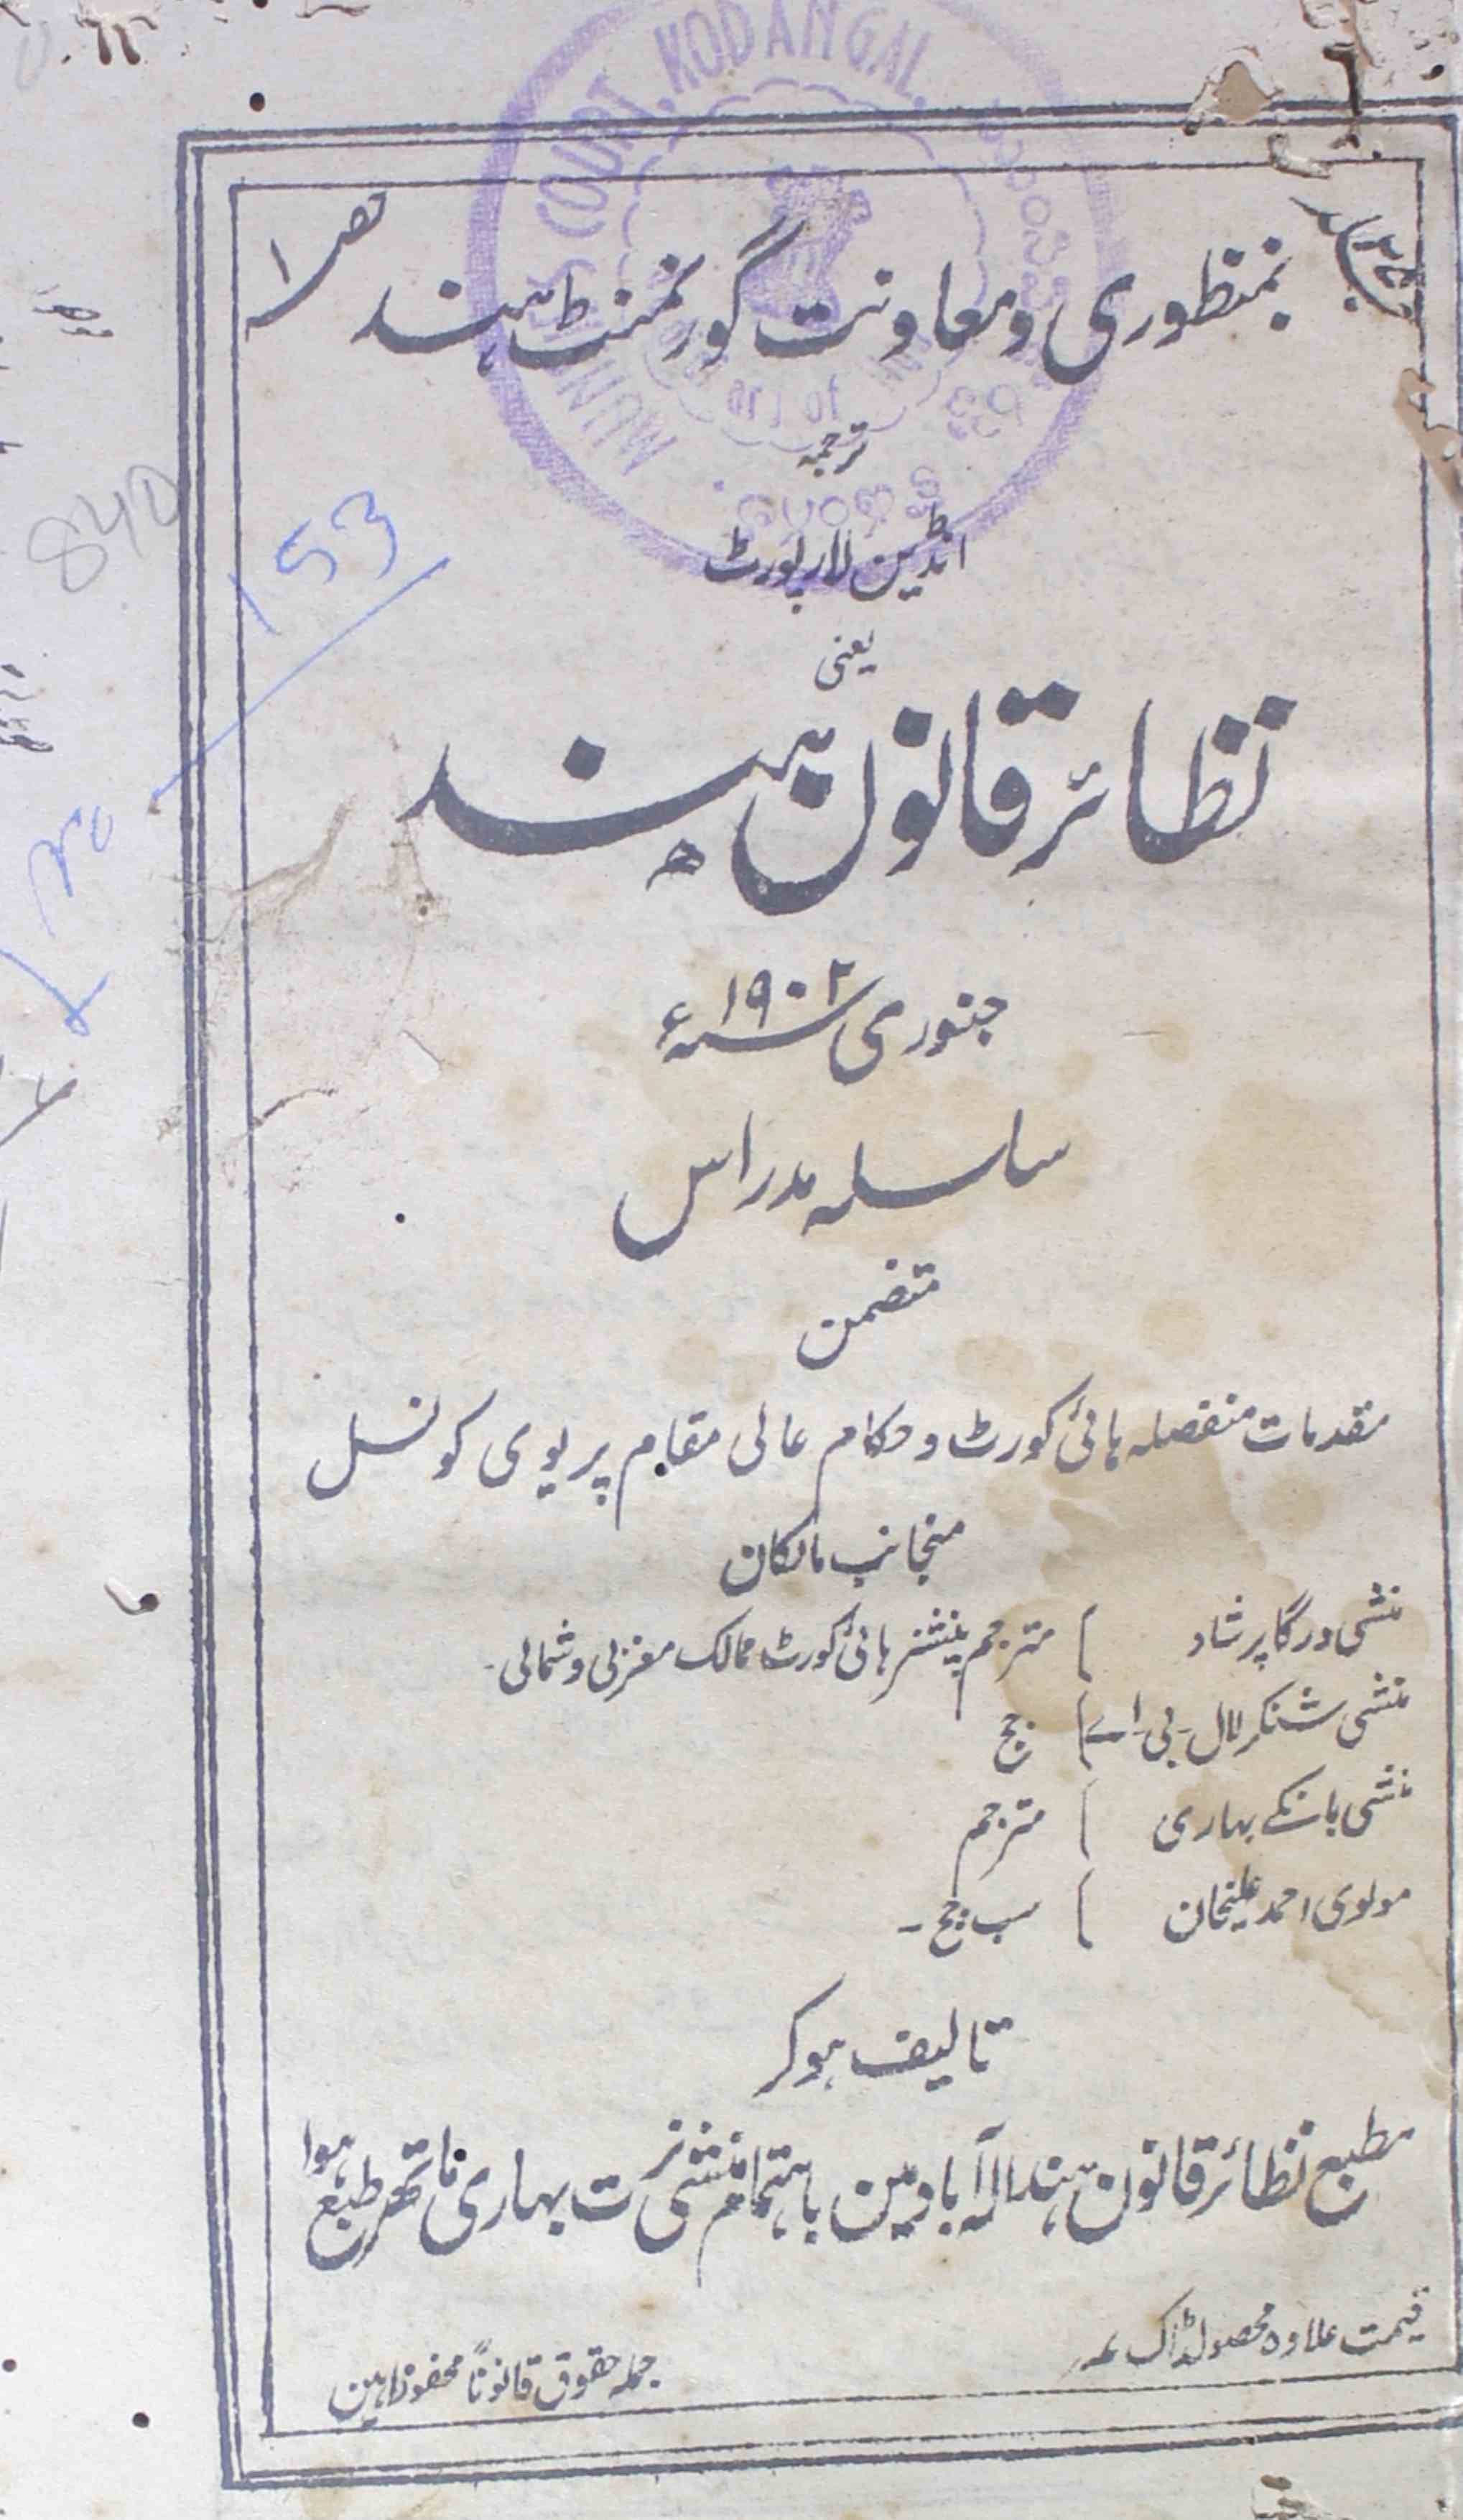 MUNSIFF'S COURT, KODANGAL.
جلد ۲۵
حصہ ۱
بمنظوری و معاونت گورنمنٹ ہند
ترجمہ
انڈین لا رپورٹ
یعنی
نظائر قانون ہند
جنوری ۱۹۰۲ سنہ ء
سلسلہ مدراس
متضمن
مقدمات منفصلہ ہائی کورٹ و حکام عالی مقام پریوی کونسل
منجانب مالکان
منشی درگا پرشاد } مترجم پنشنر ہائی کورٹ ممالک مغربی و شمالی۔
منشی شنکر لال۔ بی۔ اے } جج
منشی بانکے بہاری } مترجم
مولوی احمد علیخان } سب جج۔
تالیف ہوکر
مطبع نظائر قانون ہند الہ آباد مین باہتمام منشی نرت بہاری ناتھر طبع ہوا
قیمت علاوہ محصول ڈاک عہ
جملہ حقوق قانوناً محفوظ ہین
153
840